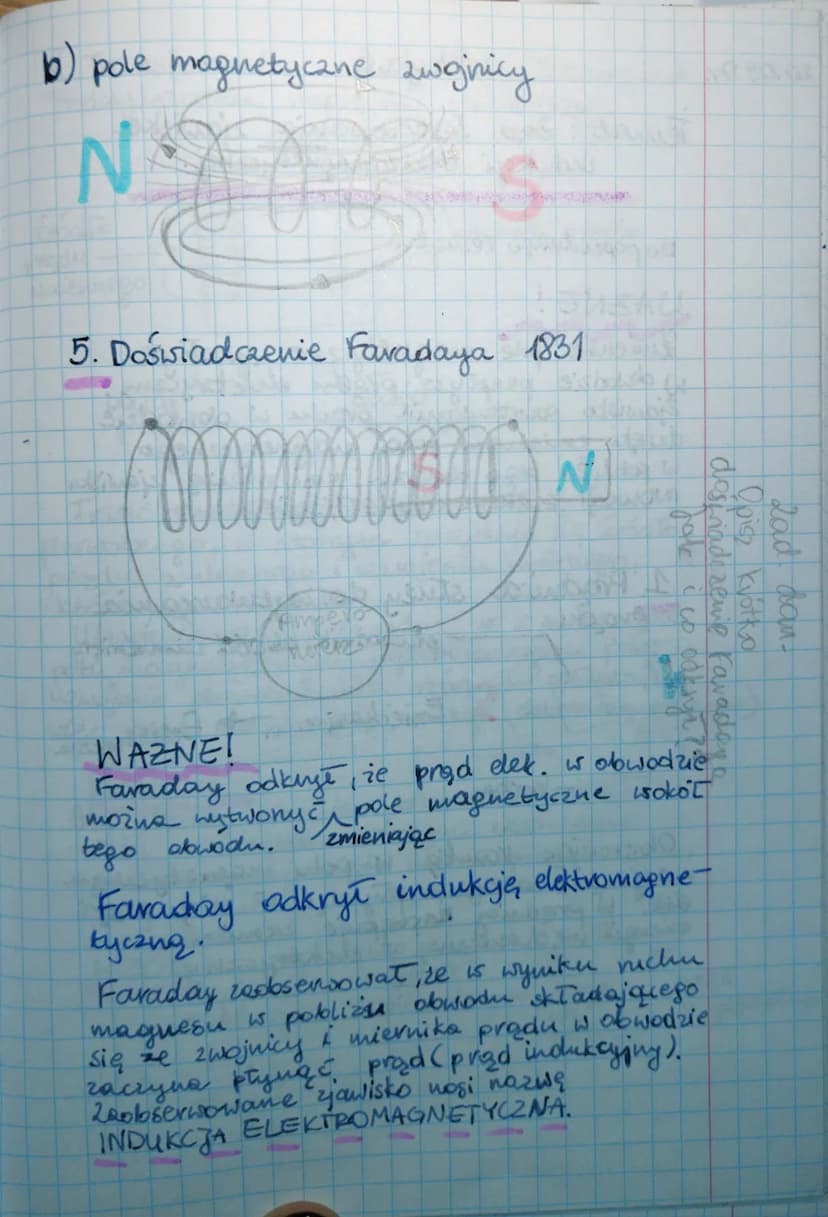 b) pole magnetyczne zwojnicy
N
S
5. Doświadczenie Faradaya 1831
S
N
Ampero
Zad. dom.
Opisz krótko
doświadczenie Faradaya
jak i co odkrył?
WAŻNE!
Faraday odkrył, że prąd elek. w obwodzie
można wytworzyć pole magnetyczne wokół
zmieniając
tego obwodu.
Faraday odkrył indukcję elektromagne-
tyczną.
Faraday zaobserwował, że w wyniku ruchu
magnesu w pobliżu obwodu składającego
się ze zwojnicy i miernika prądu w obwodzie
zaczyna płynąć prąd (prąd indukcyjny).
Zaobserwowane zjawisko nosi nazwę
INDUKCJA ELEKTROMAGNETYCZNA.